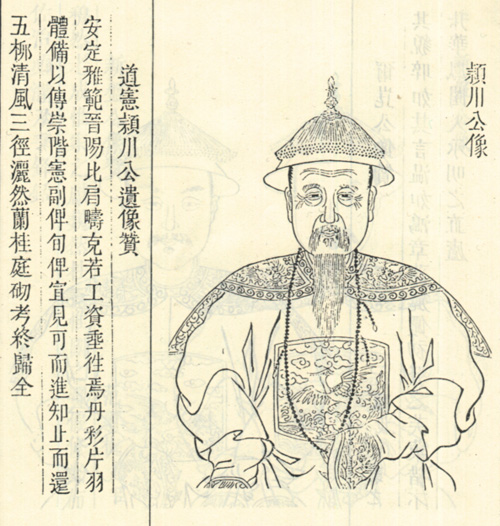 頴川公像
道憲頴川公遺像贊
安定雅範晉陽比肩疇克若工資垂徃焉丹彩片羽
體備以傳崇階憲副俾旬俾宣見可而進知止而還
五柳清風三徑灑然蘭桂庭砌考終歸全